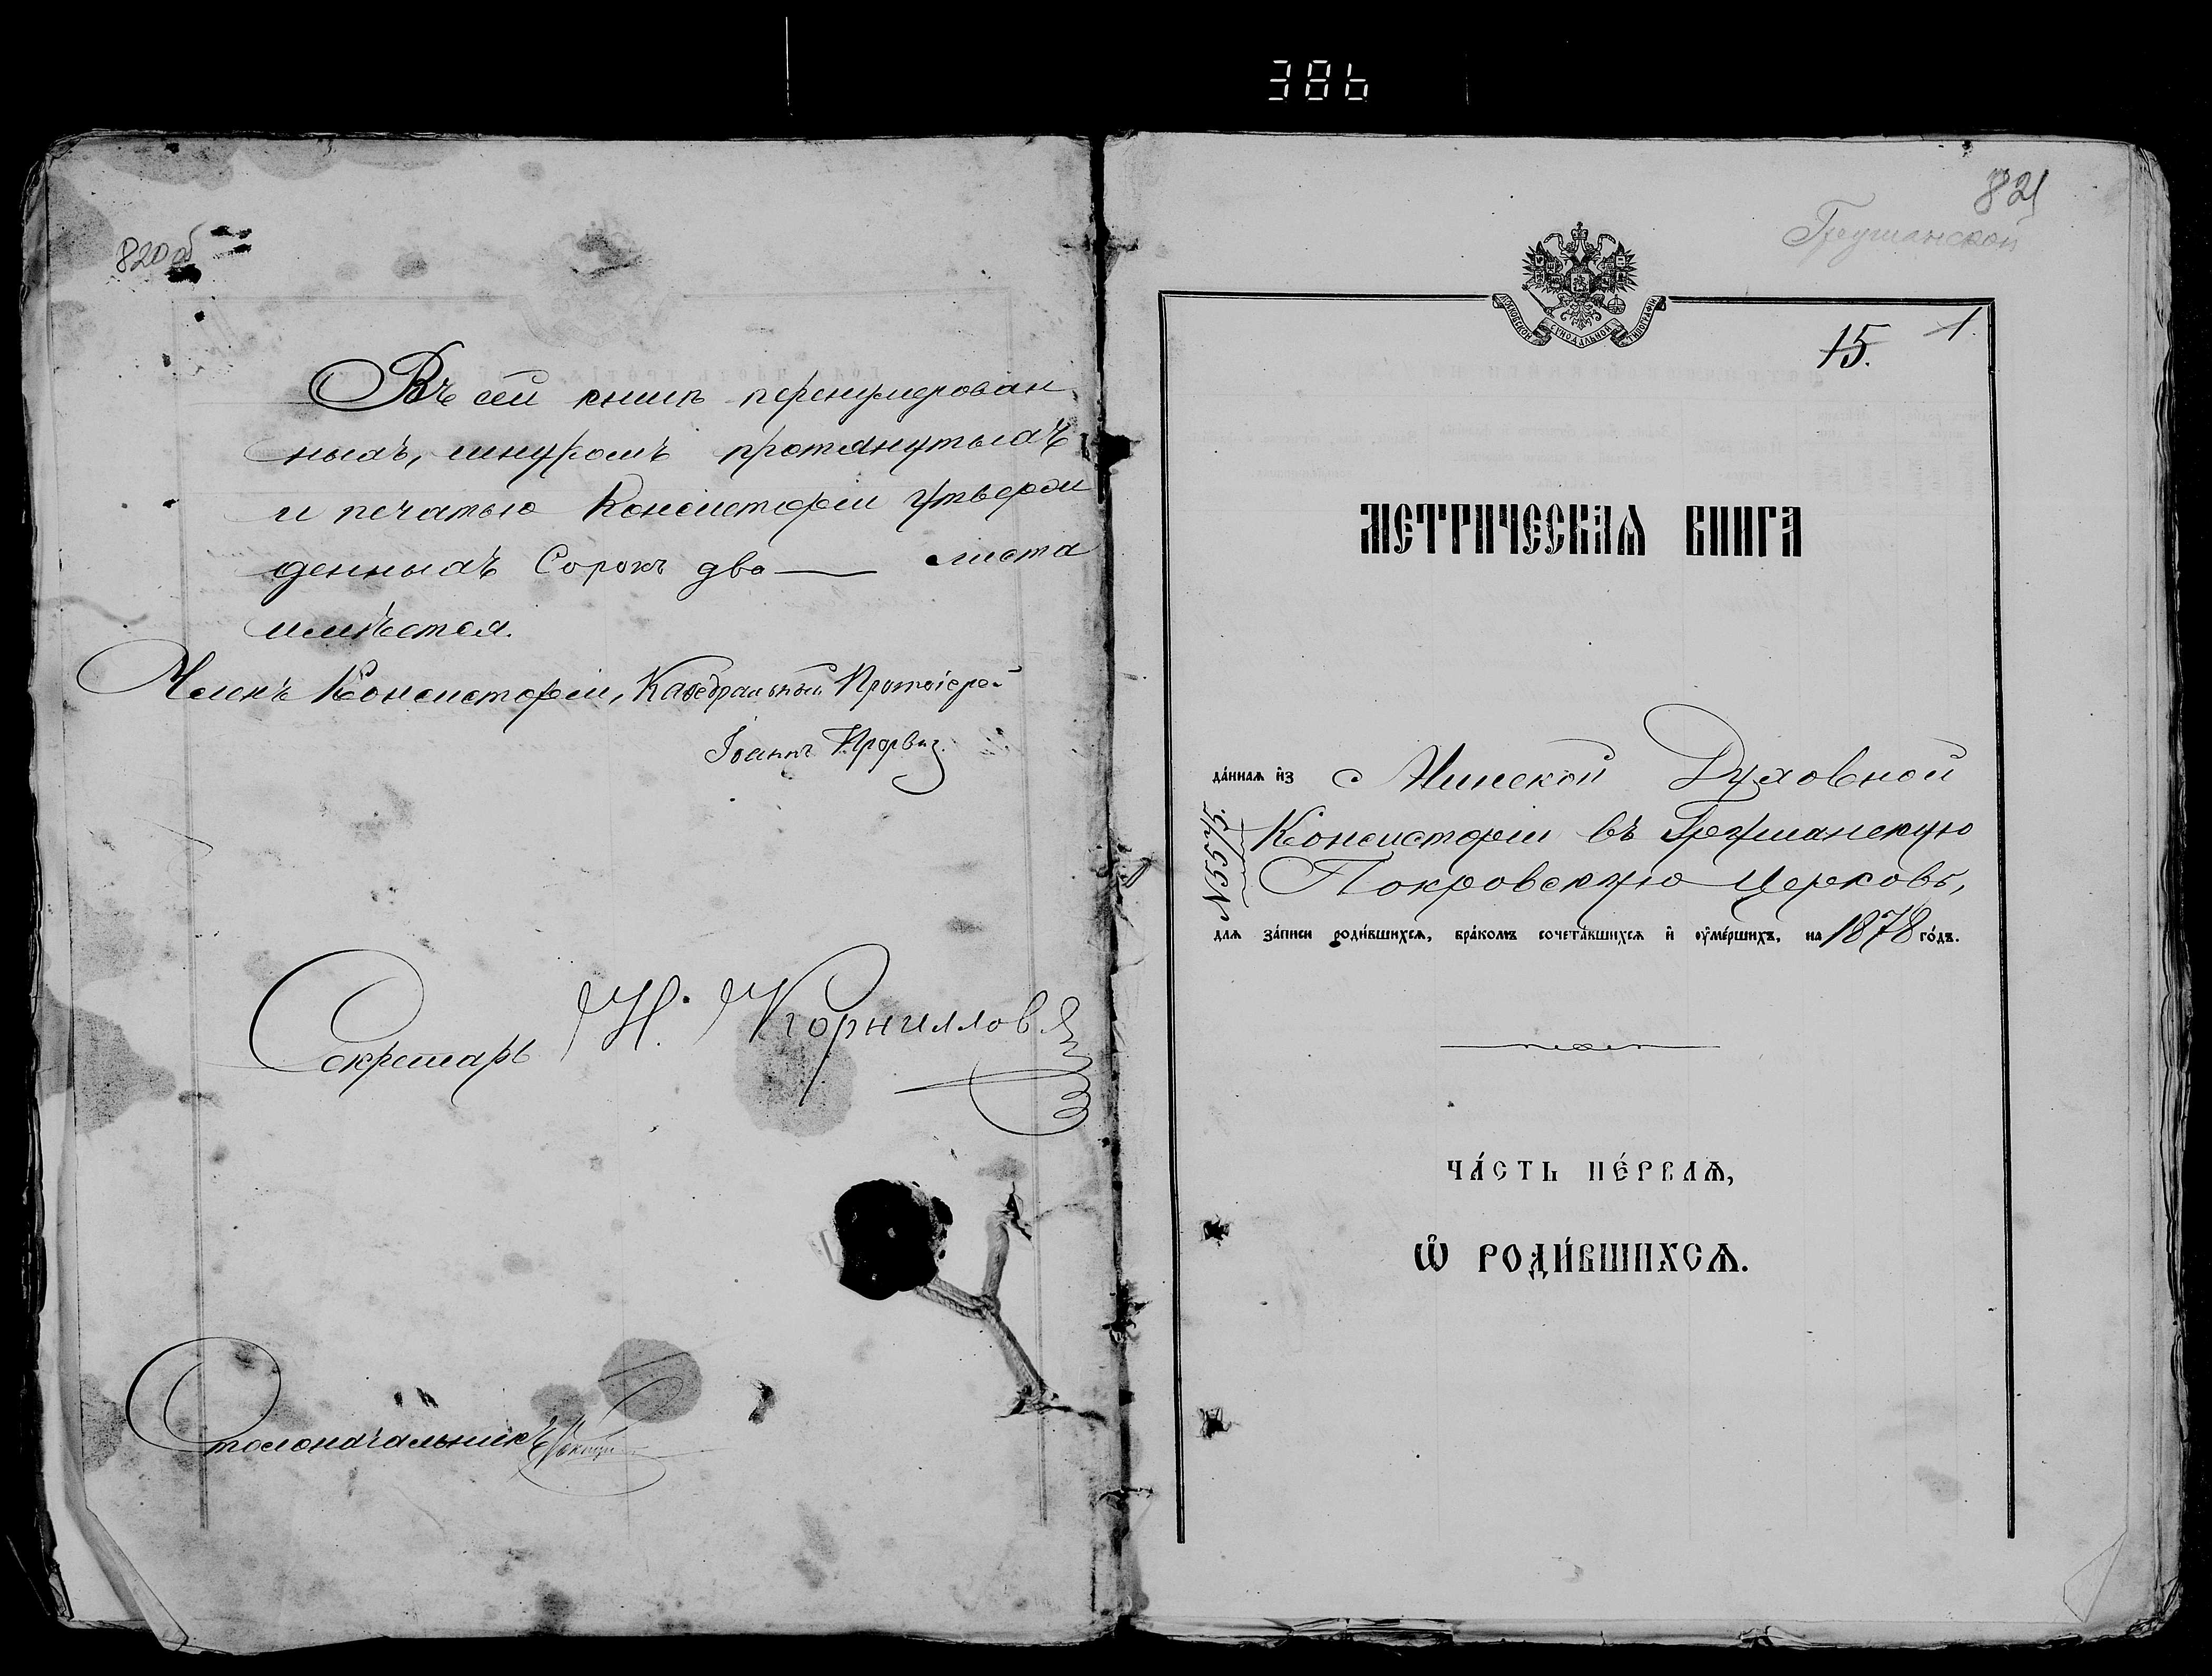 386
820об
Въ сей книгѣ перенумерован
ныхъ, шнуромъ протянутыхъ
и печатью Консисторіи утверж
денныхъ Сорокъ два листа
имѣется.
Членъ Консисторіи, Каѳедральный Протоіерей
Іоаннъ Прорвич
Секретарь Н. Корниловъ
Столоначальникъ
821
Грушанской
МОСКОВСКОЙ СУНОДАЛЬНОЙ ТИПОГРАФІИ
15. 1.
МЕТРИЧЕСКАѦ КНИГА
да́ннаѧ и҆з Минской Духовной
Консисторіи въ Грушанскую
Покровскую Церковь,
№ 5575
длѧ за́писи роди́вшихсѧ, бра́комъ сочета́вшихсѧ и҆ оу҆ме́ршихъ, на 1878 го́дъ.
ЧА́СТЬ ПЕ́РВАѦ,
Ѽ РОДИ́ВШИХСѦ.